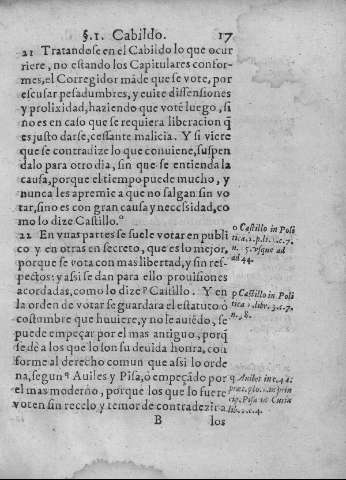 §.1. Cabildo. 17
21 Tratandose en el Cabildo lo que ocur
riere, no estando los Capitulares confor-
mes, el Corregidor māde que se vote, por
escusar pesadumbres, y euite dissensiones
y prolixidad, haziendo que votē luego, si
no es en caso que se requiera liberacion q̄
es justo darse, cessante malicia. Y si viere
que se contradize lo que conuiene, suspen
dalo para otro dia, sin que se entienda la
causa, porque el tiempo puede mucho, y
nunca les apremie a que no salgan sin vo
tar, sino es con gran causa y necessidad, co
mo lo dize Castillo.º
22 En vnas partes se suele votar en publi
co y en otras en secreto, que es lo mejor,
porque se vota con mas libertad, y sin res-
pectos: y assi se dan para ello prouisiones
acordadas, como lo dizeᵖ Castillo. Y en
la orden de votar se guardara el estatuto ó
costumbre que huuiere, y no le auiēdo, se
puede empeçar por el mas antiguo, porq̄
se dè a los que lo son su deuida honra, con
forme al derecho comun que assi lo orde
na, segunq Auiles y Pisa, ó empeçādo por
el mas moderno, porque los que lo fuere
voten sin recelo y temor de contradezir a
B los
o Castillo in Poli
tica.1.p.li.3.c.7.
n.5. vsque ad
ad 44.
p Castillo in Poli
tica. libr. 3.c.7.
n.8.
q Auiles in c.42:
præt. glo. 1. in prin
cip. Pisa in Curia
lib. 1.c.4.